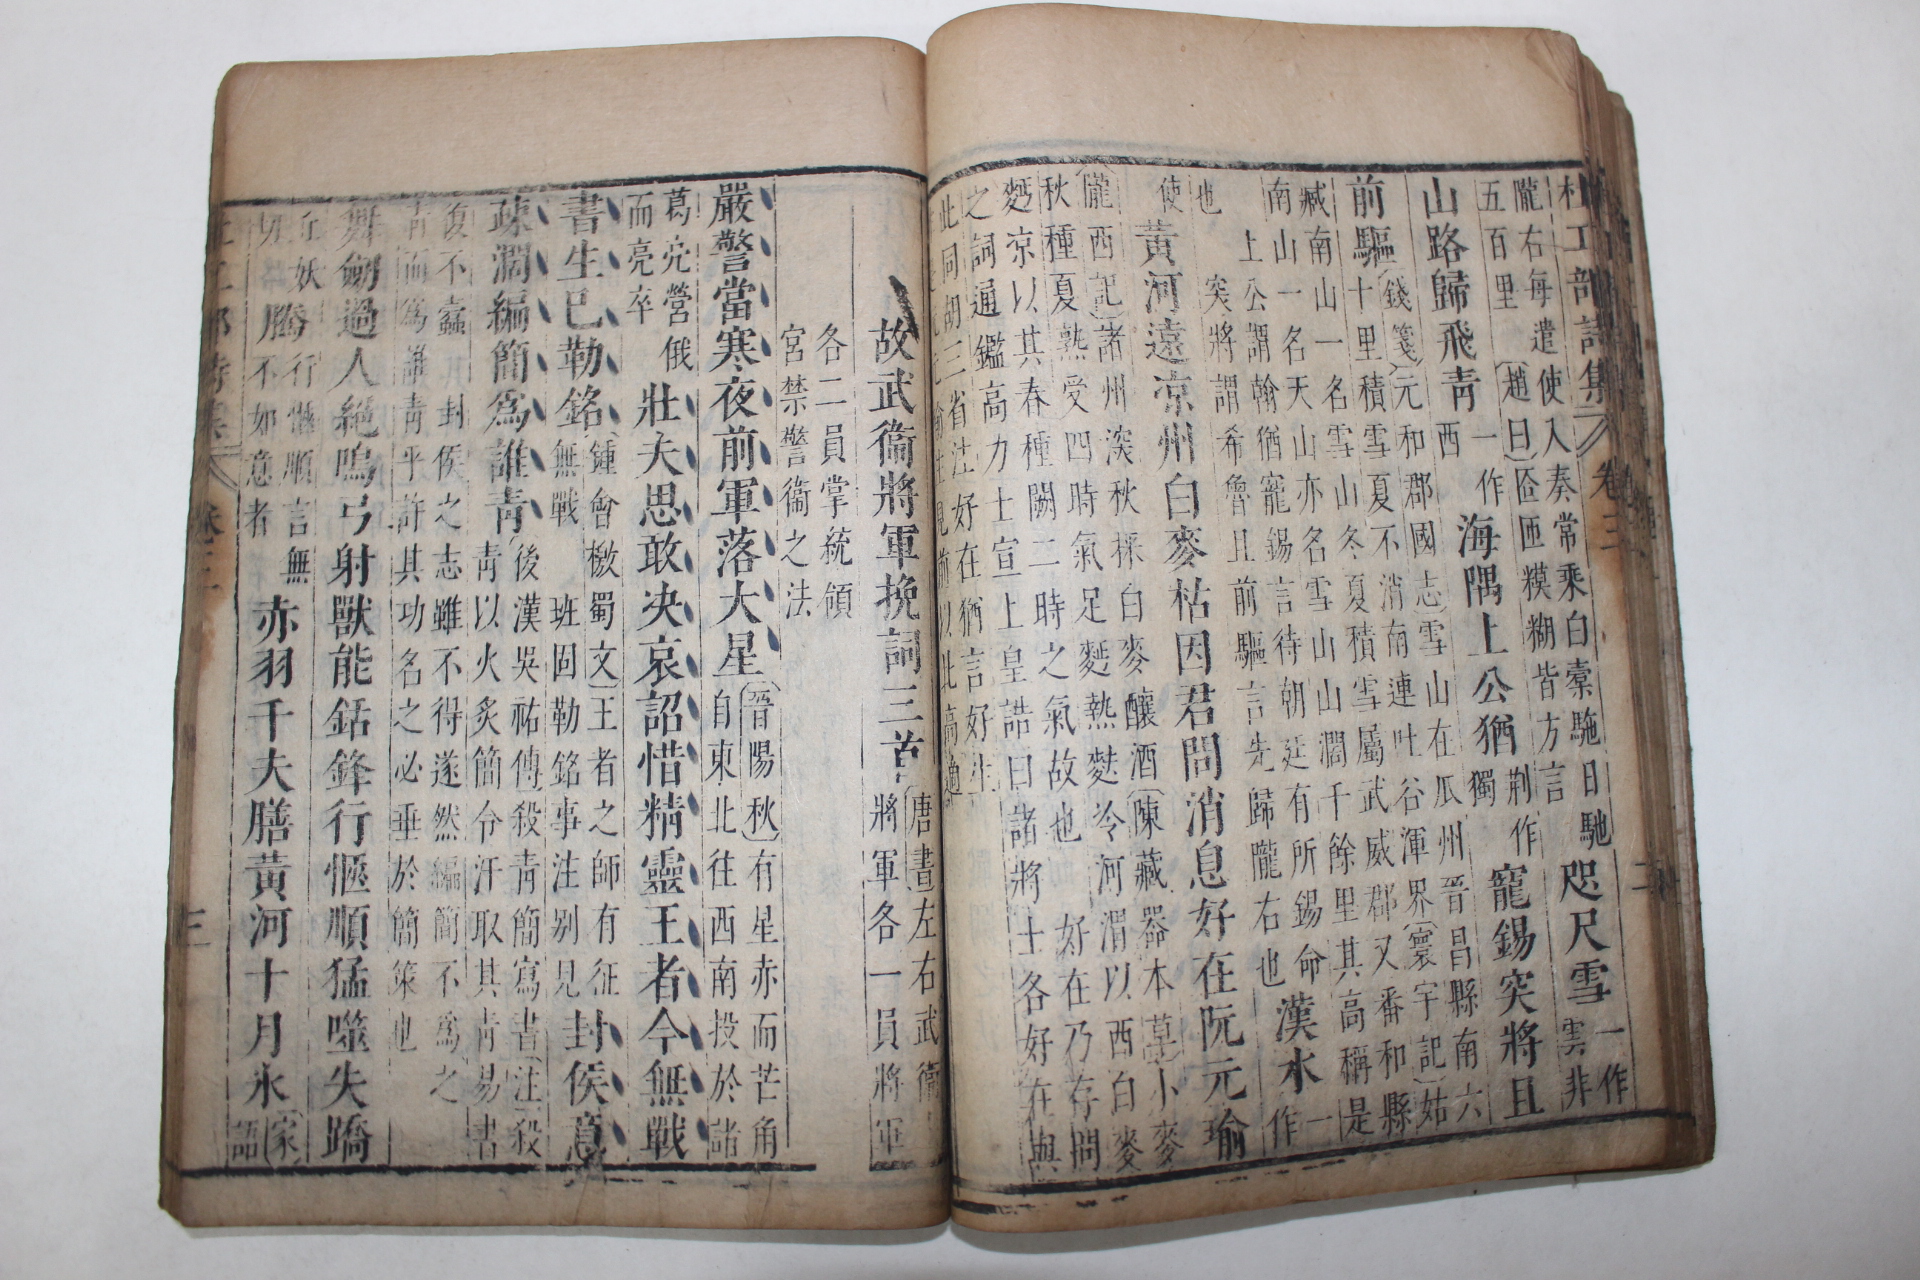 杜工部詩集 卷三 二
隴右每遣使入奏常乘白橐駞日馳
五百里〔趙曰〕匼匝糢糊皆方言 咫尺雪一作雲非
山路歸飛青一作西 海隅上公猶荆作獨 寵錫突將且
前驅〔錢箋〕元和郡國志〕雪山在瓜州晉昌縣南六
十里積雪夏不消南連吐谷渾界〔寰宇記〕姑
臧南山一名雪山冬夏積雪屬武威郡又番和縣
南山一名天山亦名雪山山濶千餘里其高稱是
上公謂翰猶寵錫言待朝廷有所錫命
突將謂希魯且前驅言先歸隴右也 漢水一作
也
使 黃河遠涼州白麥枯因君問消息好在阮元瑜
〔隴西記〕諸州深秋採白麥釀酒〔陳藏器本草〕小麥
秋種夏熟受四時氣足麪熱麩冷河渭以西白麥
麪凉以其春種闕二時之氣故也 好在乃存問
之詞通鑑高力士宣上皇誥曰諸將士各好在與
此同胡三省注好在猶言好生
故武衞將軍挽詞三首〔唐書〕左右武衞
將軍各一員將軍
各二員掌統領
宮禁警衞之法
嚴警當寒夜前軍落大星〔晉陽秋〕有星赤而芒角
自東北往西南投於諸
葛亮營俄
而亮卒 壯夫思敢决哀詔惜精靈王者今無戰
書生已勒銘〔鍾會檄蜀文〕王者之師有征
無戰 班固勒銘事注别見 封侯意
疎濶編簡爲誰青〔後漢吳祐傳〕殺青簡寫書〔注〕殺
青以火炙簡令汗取其青易書
復不蠹 其封侯之志雖不得遂然編簡不爲之
青而爲誰青乎許其功名之必垂於簡策也
舞劒過人絕鳴弓射獸能銛鋒行愜順猛噬失蹻
丘妖切 騰行愜順言無不如意者 赤羽千夫膳黃河十月氷〔家語
杜工部詩集 卷三 三